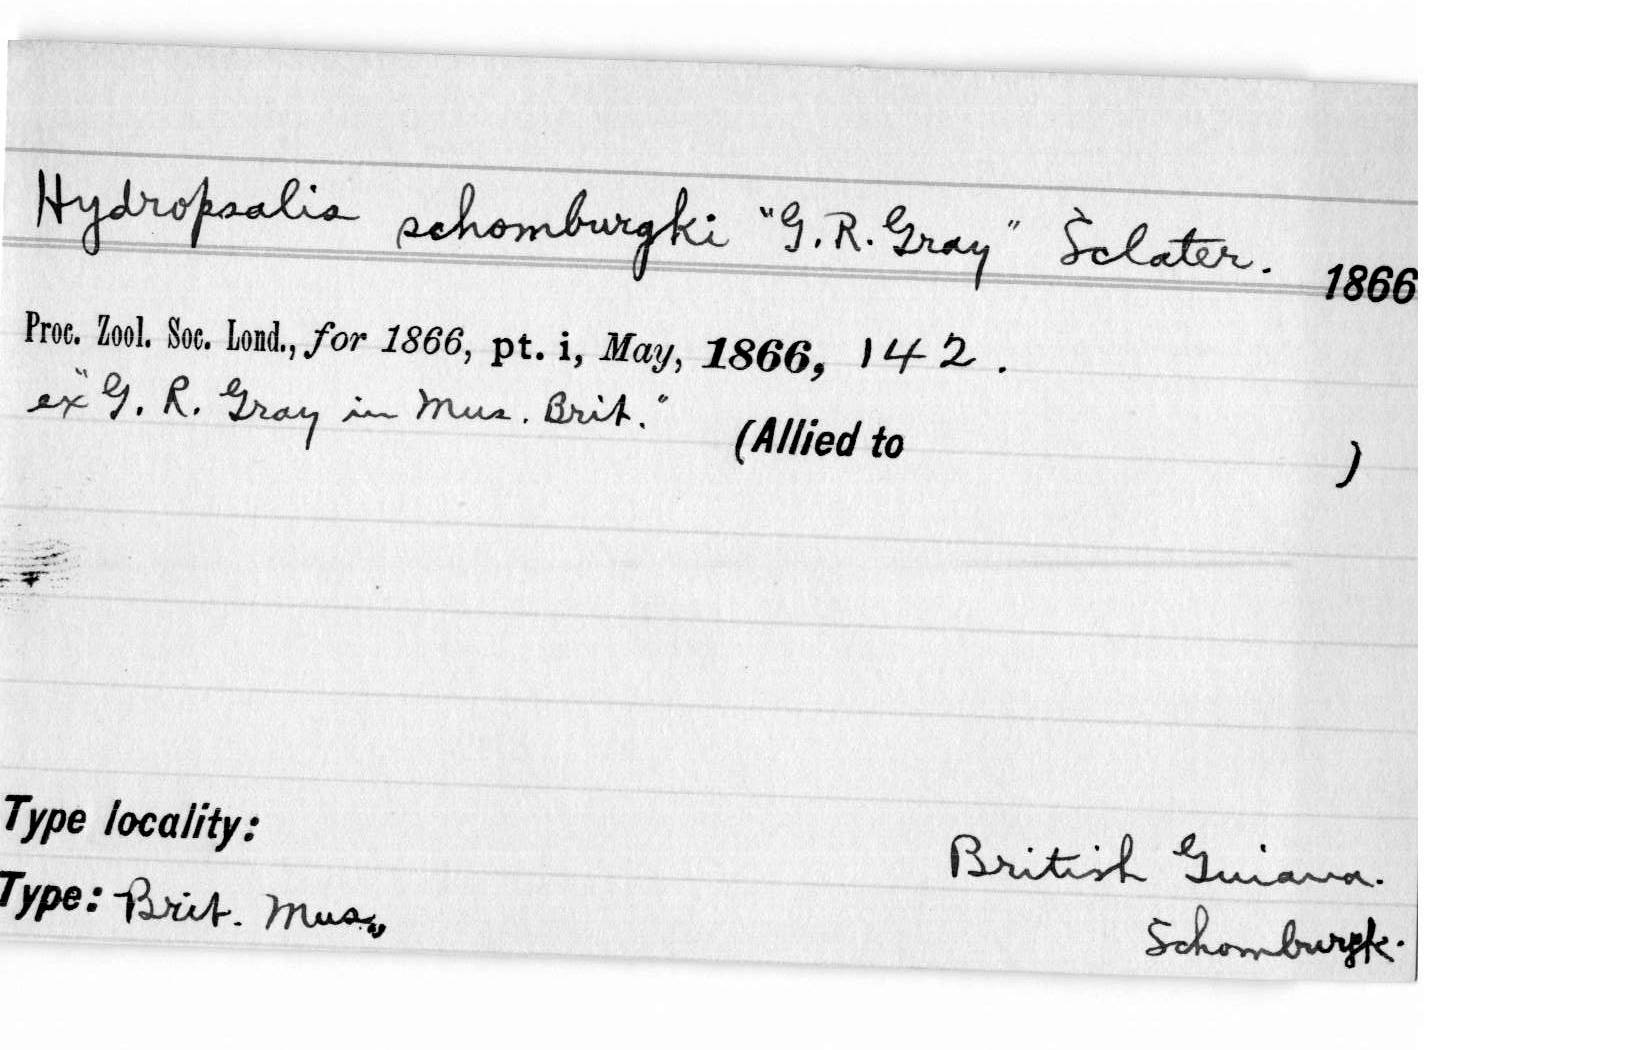 Hydropsalis schomburgki "G. R. Gray" Sclater. 1866
Proc. Zool. Soc. Lond., for 1866, pt. i, May, 1866, 142.
ex "G. R. Gray in Mus. Brit."
(Allied to )
Type locality: British Guiana.
Type: Brit. Mus. Schomburgk.